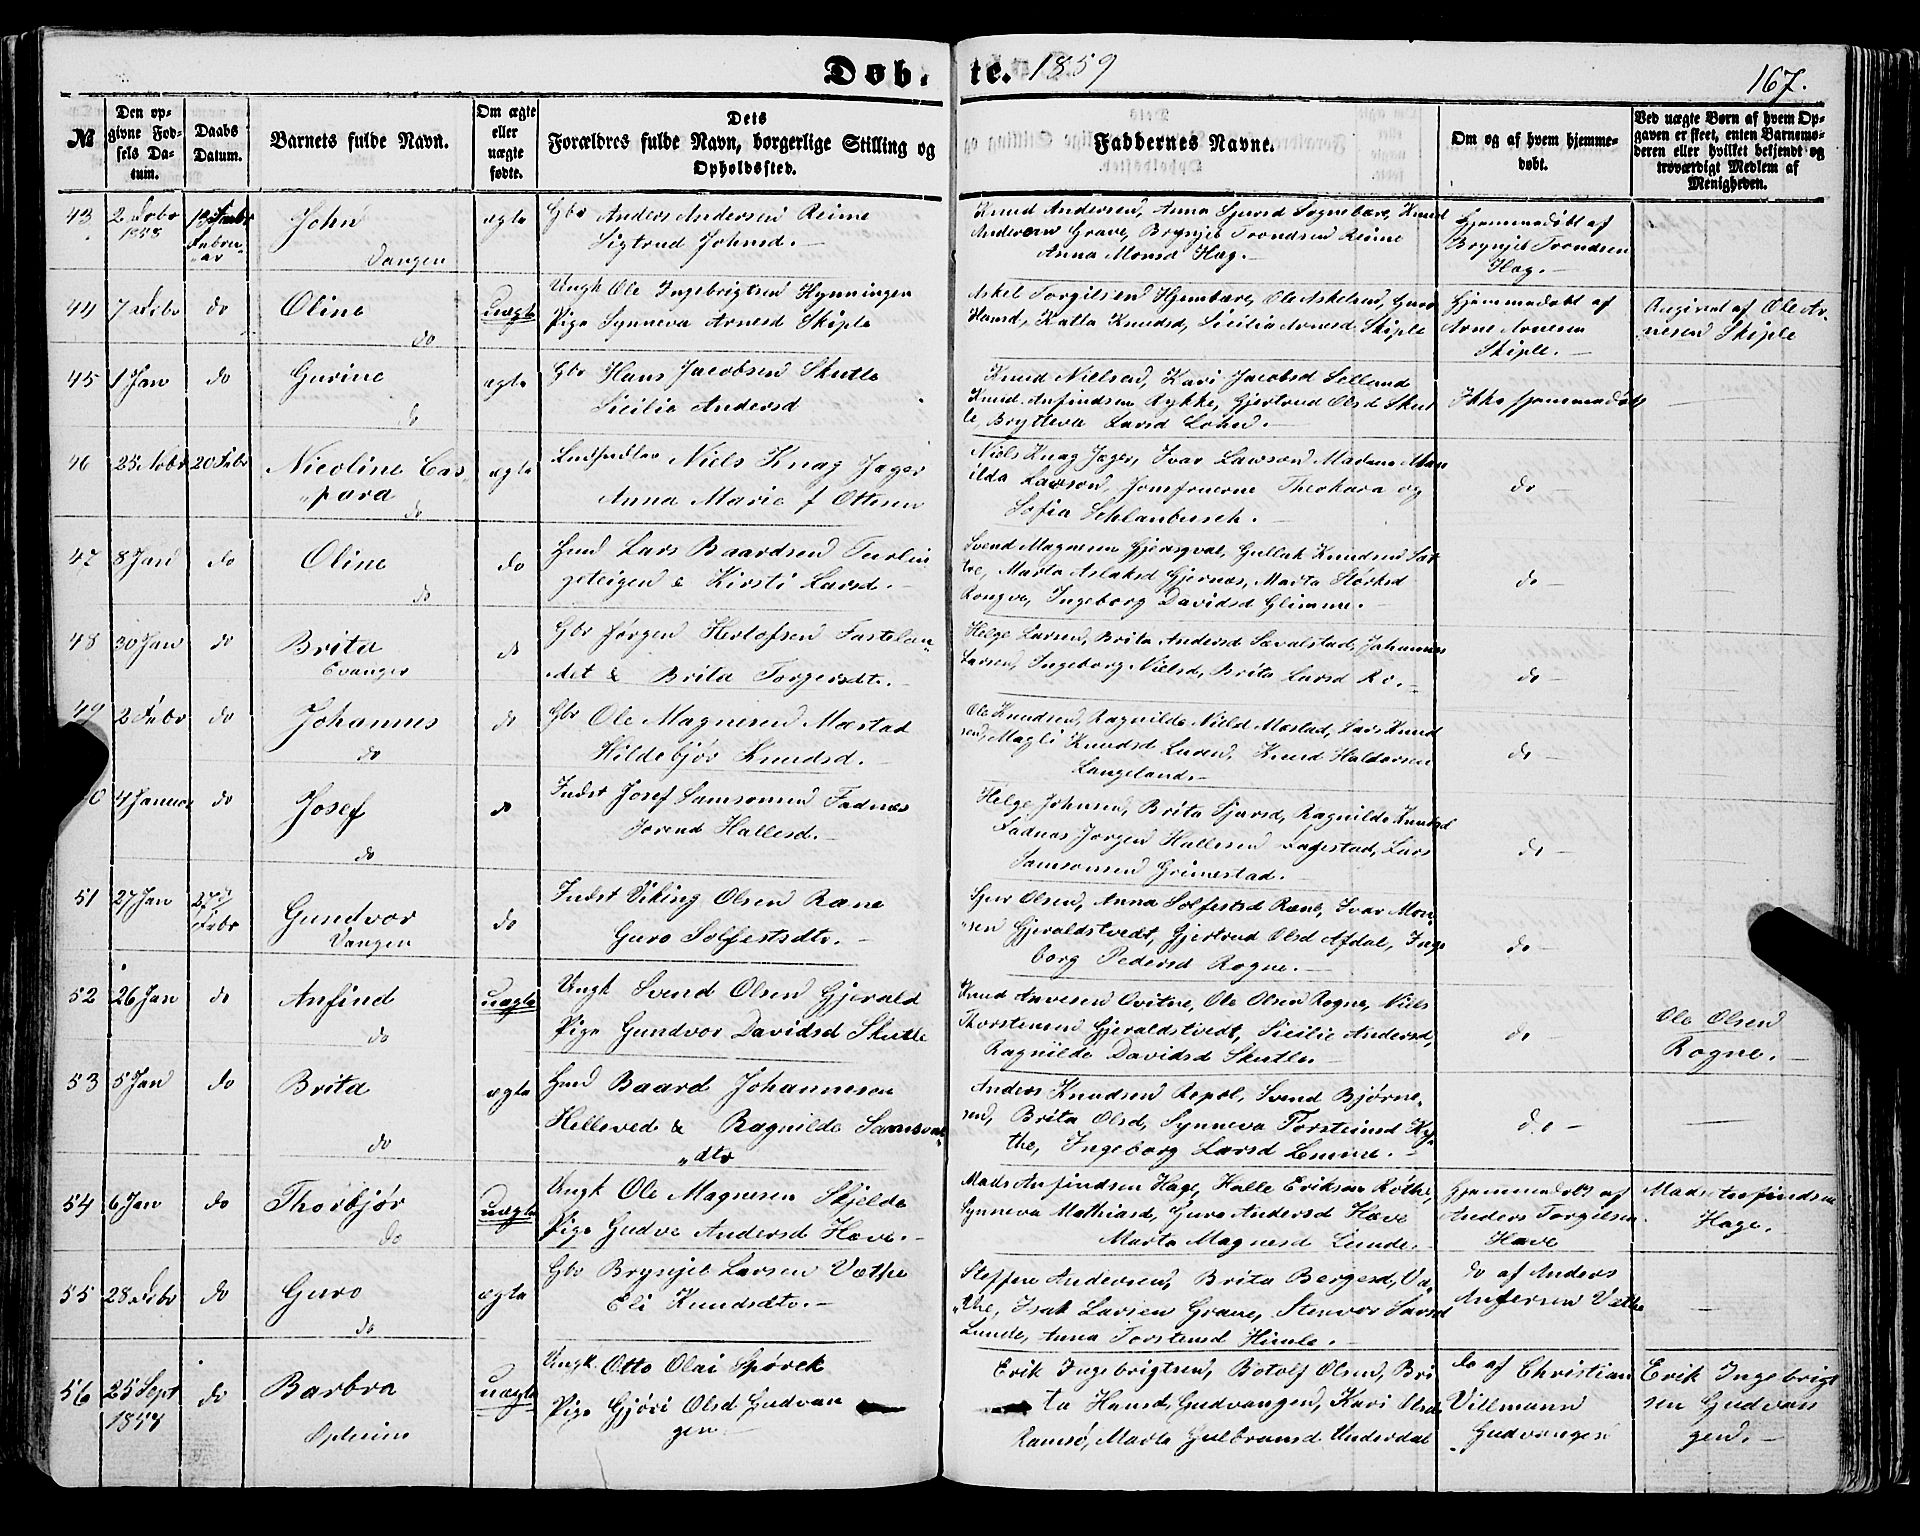 Døbte. 1859
167.
№
Den opgivne Fødsels Datum.
Daabs Datum.
Barnets fulde Navn.
Om ægte eller uægte fødte.
Dets Forældres fulde Navn, borgerlige Stilling og Opholdssted.
Faddernes Navne.
Om og af hvem hjemmedøbt.
Ved uægte Børn af hvem Opgaven er skeet, enten Barnemoderen eller hvilket bekjendt og troværdigt Medlem af Menigheden.
43 John Vangen ægte Gbr Anders Andersen Reime
Sigtrud Johnsd.
Knud Andersen, Anna Sjursd Sognebær, Knud
Andersen Grave, Brynjel Trondsen Reime
Anna Monsd Hæg.
Hjemmedøbt af
Brynjel Trondsen
Hæg.
44 7 Febr do Oline do uægte Ungk Ole Ingebrigtsen Hynningen
Pige Synneva Arnesd Skiple
Askel Torgilsen Hjembære, Ole Askelsen, Guro
Hansd, Katla Knudsd, Sicilia Arnesd Skiple
Hjemmedøbt af
Arne Arnesen
Skiple.
Angivet af Ole Ar-
nesen Skiple
45 1 Jan do Gurine do ægte Gbr Hans Jacobsen Skutle
Sicilia Andersd
Knud Nielsen, Kari Jacobsd Selland
Knud Anfindsen Rykke, Gjertrud Olsd Skut-
le, Brytteva Larsd Lohn.
Ikke hjemmedøbt
46 20 Febr Nicoline Cas-
para do ægte Niels Knag Jæger
Anna Marie f Ottesen
Niels Knag Jæger, Ivar Lawson Madame
Lawson, Jomfruerne Theohara og
Sofia Schlanbusch.
do
47 8 Jan do Oline do do Gmd Lars Baardsen
geteigen & Kirsti Larsd.
Svend Magnesen Gjerasqval, Gullak Knudsen Sæt-
re, Marta Aslaksd Gjernæs, Marta Størksd
Rongve, Ingeborg Davidsd Glimme.
do
48 30 Jan do Brita Evanger do Gbr Jørgen Herlofsen Fastelan-
det & Brita Torgersdtr.
Helge Larsen, Brita Andersd Sævalstad, Johannes
Larsen, Ingeborg Nielsd, Brita Larsd Ro.
do
49 2 Febr do Johannes do do Gbr Ole Magnesen Mæstad
Hildebjør Knudsd.
Ole Knudsen, Ragnilde Nielsd Mæstad, Lars Knud
sen, Magli Knudsd Luren, Knud Haldorsen
Langeland.
do
0 4 Januar do Josef do do Indst Josef Samsonsen Fadnæs
Jorend Hallesd.
Helge Johnsen, Brita Sjursd, Ragnilde Knudsd
Fadnæs Jørgen Hallesen Fagestad, Lars
Samsonsen Grimestad.
do
51 27 Jan 27 Febr Gundvor Vangen do Indst Viking Olsen Ræne
Guro Solfestsdtr.
Sjur Olsen, Anna Solfestsd Ræne, Ivar Mon-
sen Gjeraldstvedt, Gjertrud Olsd Afdal, Inge
borg Pedersd Rogne.
do
52 26 Jan do Anfind do uægte Ungk Svend Olsen Gjerald
Pige Gundvor Davidsd Skutle
Knud Qvitne, Ole Olsen Rogne, Niels
Thorstensen Gjeraldstvedt, Sicilie Andersd,
Ragnilde Davidsd Skutle.
do
Ole Olsen
Rogne.
53 5 Jan do Brita do ægte Gmd Baard Johannesen
Helleved & Ragnilde Samsons
dtr
Anders Knudsen Repol, Svend Bjørne-
sen, Brita Olsd, Synneva Torsteinsd Ky-
the, Ingeborg Larsd Lemme.
do
54 6 Jan do Thorbjør do uægte Ungk Ole Magnesen Skjelde
Pige Gudve Andersd Hæve.
Mads Anfindsen Hage, Halle Eriksen Røthe,
Synneva Mathiasd, Guro Andersd Hæve
Marta Magnesd Lunde.
Hjemmedøbt af
Anders Torgilsen
Hæve
Mads Anfindsen
Hage.
55 28 Febr do Guro do ægte Gbr Brynjel Larsen Væthe
Eli Knudsdtr.
Steffen Andersen, Brita Bergesd, Væ-
the, Isak Larsen Grave, Stenvor Larsd
Lunde, Anna Torstensd Himle.
do af Anders
Andersen Væthe
56 25 Sept do Barbra Opheim uægte Ungk. Otto Olai Spørck
Pige Gjøri Olsd Gudvan
gen
Erik Ingebrigtsen, Botolf Olsen, Bri
ta Hansd, Gudvangen, Kari Olsd
Ramsø, Marta Gulbransd Underdal
do af Christian
Villmann
Gudvangen
Erik Ingebrigt
sen Gudvan
gen.